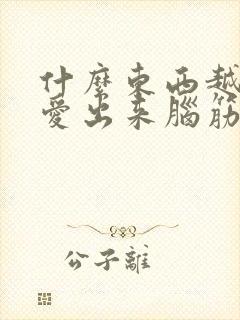 什麼東西越
愛出来腦筋
公子離